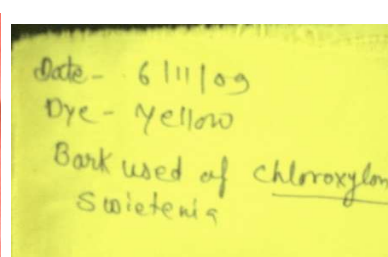 Date - 6/11/09
Dye - Yellow
Bark used of chloroxylon
Swietenia